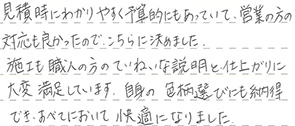 見積時にわかりやすく予算的にもあっていて、営業の方の
対応も良かったので、こちらに決めました。
施工も職人の方のていねいな説明と、仕上がりに
大変満足しています。自身の色柄選びにも納得
でき、すべてにおいて快適になりました。